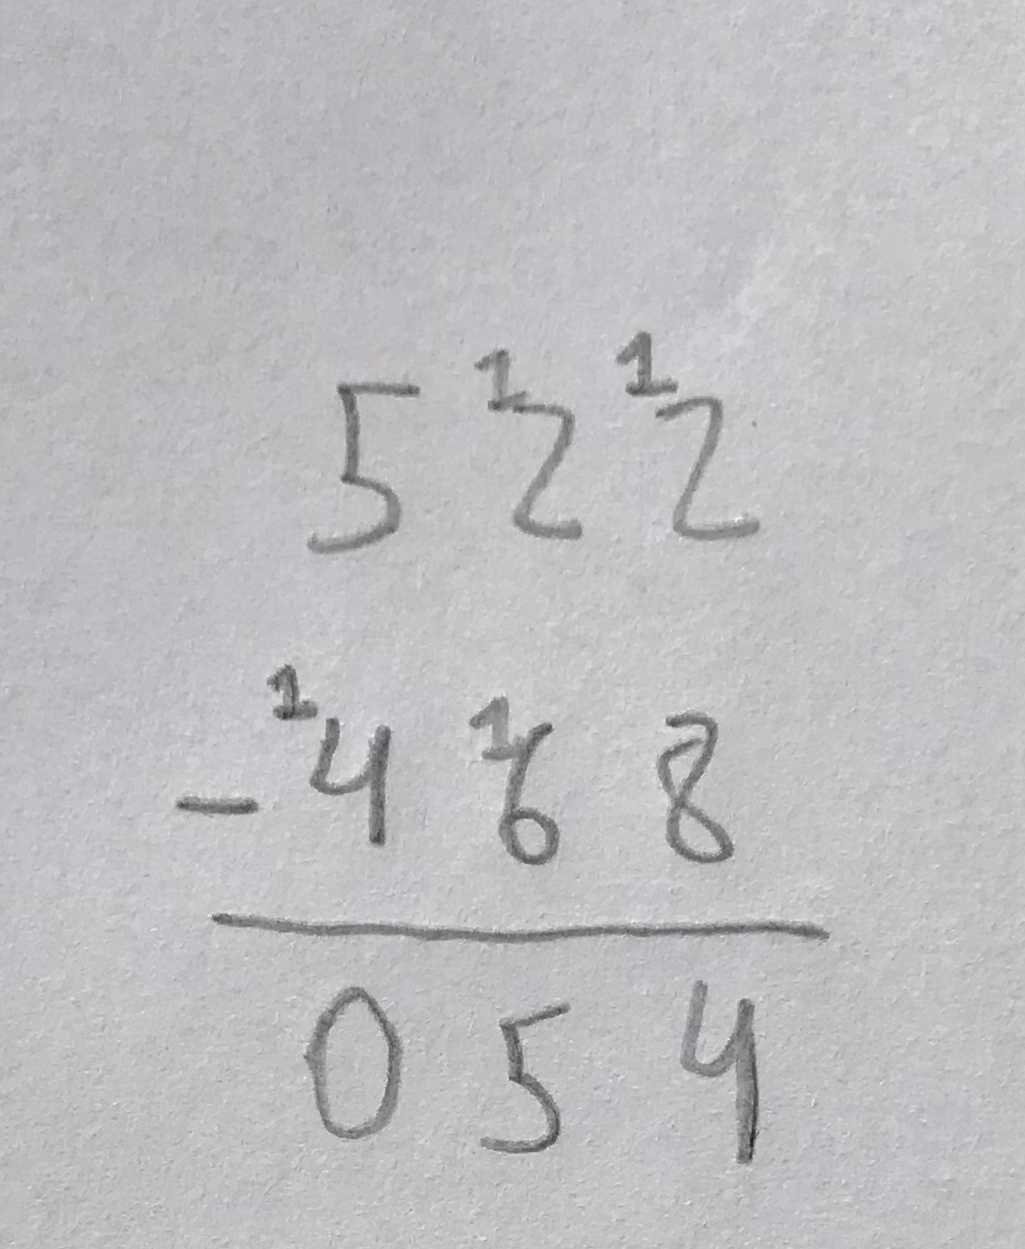 5 ¹2 ¹2
- ¹4 ¹6 8
0 5 4